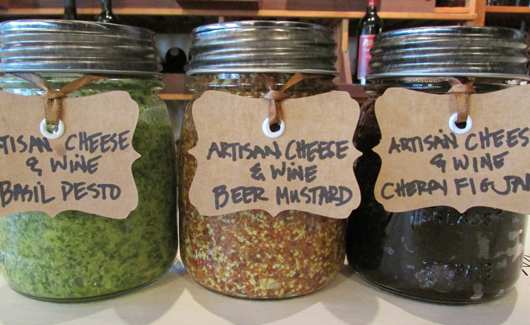 TISAN CHEESE
& WINE
BASIL PESTO
ARTISAN CHEECE
& WINE
BEER MUSTARD
ARTISAN CHEES
& WINE
CHERRY FIG JAM